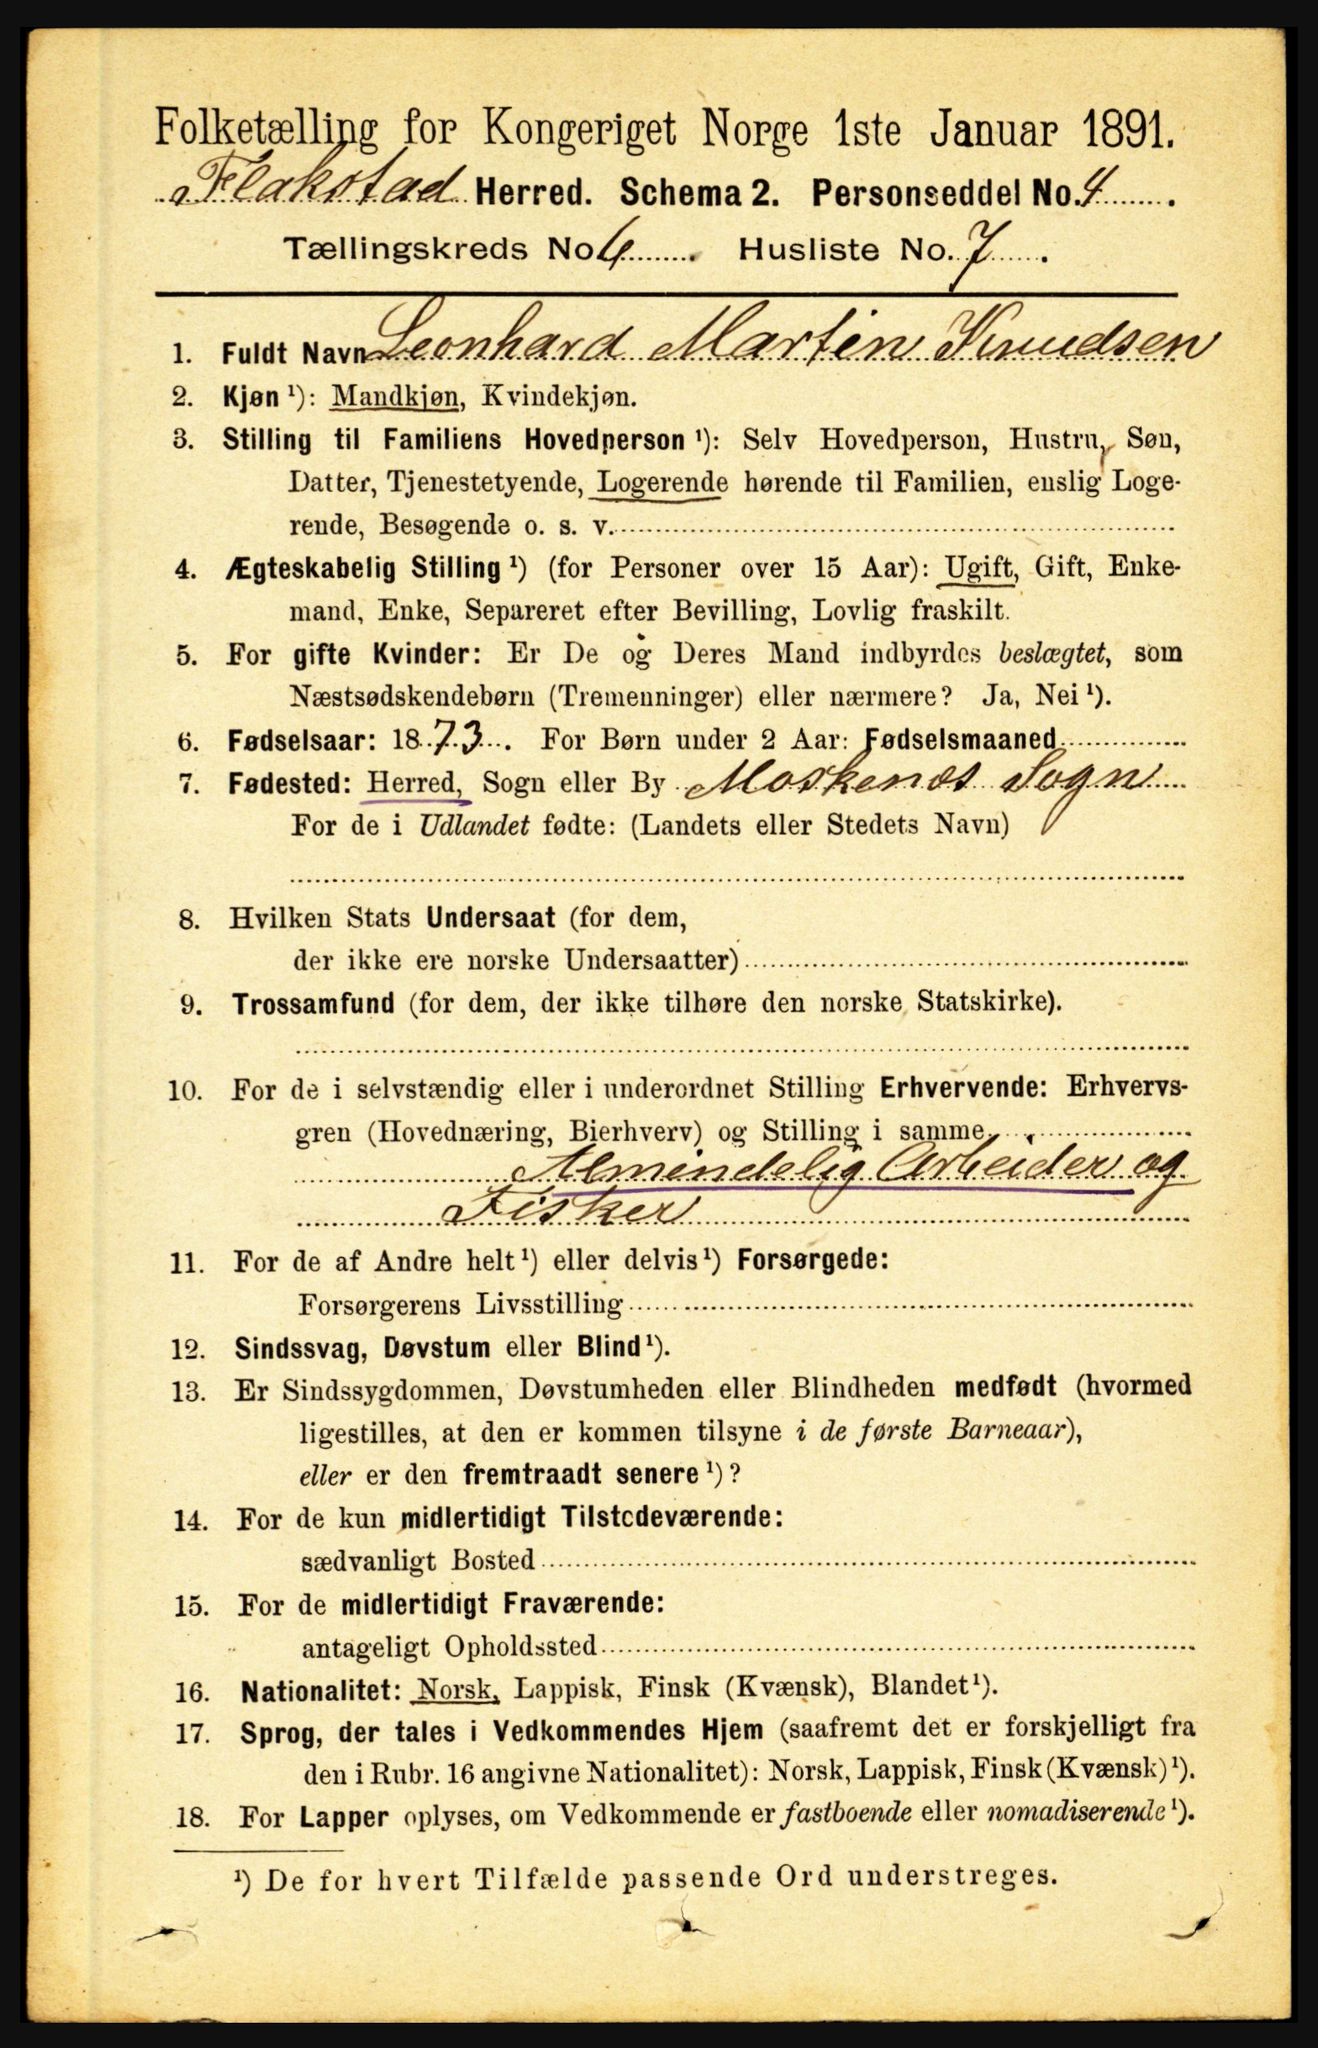 Folketælling for Kongeriget Norge 1ste Januar 1891.
Flakstad Herred. Schema 2. Personseddel No. 4.
Tællingskreds No. 6. Husliste No. 7.
1. Fuldt Navn Leonhard Martin Knudsen
2. Kjøn ¹): Mandkjøn, Kvindekjøn.
3. Stilling til Familiens Hovedperson ¹): Selv Hovedperson, Hustru, Søn,
Datter, Tjenestetyende, Logerende hørende til Familien, enslig Loge-
rende, Besøgende o. s. v.
4. Ægteskabelig Stilling ¹) (for Personer over 15 Aar): Ugift, Gift, Enke-
mand, Enke, Separeret efter Bevilling, Lovlig fraskilt.
5. For gifte Kvinder: Er De og Deres Mand indbyrdes beslægtet, som
Næstsødskendebørn (Tremenninger) eller nærmere? Ja, Nei ¹).
6. Fødselsaar: 1873. For Børn under 2 Aar: Fødselsmaaned
7. Fødested: Herred, Sogn eller By Moskenæs Sogn
For de i Udlandet fødte: (Landets eller Stedets Navn)
8. Hvilken Stats Undersaat (for dem,
der ikke ere norske Undersaatter)
9. Trossamfund (for dem, der ikke tilhøre den norske Statskirke).
10. For de i selvstændig eller i underordnet Stilling Erhvervende: Erhvervs-
gren (Hovednæring, Bierhverv) og Stilling i samme
Almindelig Arbeider og
Fisker
11. For de af Andre helt ¹) eller delvis ¹) Forsørgede:
Forsørgerens Livsstilling
12. Sindssvag, Døvstum eller Blind ¹).
13. Er Sindssygdommen, Døvstumheden eller Blindheden medfødt (hvormed
ligestilles, at den er kommen tilsyne i de første Barneaar),
eller er den fremtraadt senere ¹)?
14. For de kun midlertidigt Tilstedeværende:
sædvanligt Bosted
15. For de midlertidigt Fraværende:
antageligt Opholdssted
16. Nationalitet: Norsk, Lappisk, Finsk (Kvænsk), Blandet ¹).
17. Sprog, der tales i Vedkommendes Hjem (saafremt det er forskjelligt fra
den i Rubr. 16 angivne Nationalitet): Norsk, Lappisk, Finsk (Kvænsk) ¹).
18. For Lapper oplyses, om Vedkommende er fastboende eller nomadiserende ¹).
¹) De for hvert Tilfælde passende Ord understreges.